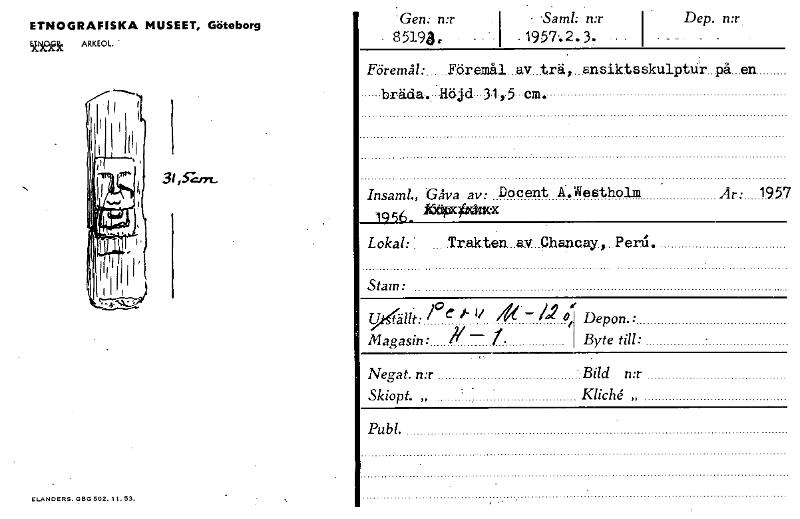 ETNOGRAFISKA MUSEET, Göteborg
ETNOGR. ARKEOL.
31,5cm
ELANDERS. GBG 502. 11. 53.
Gen. n:r Saml. n:r Dep. n:r
85193. 1957.2.3.
Föremål: Föremål av trä, ansiktsskulptur på en
bräda. Höjd 31,5 cm.
Insaml., Gåva av: Docent A.Westholm År: 1957
1956.
Lokal: Trakten av Chancay, Perú.
Stam:
Utställt: Peru M-12 Depon.:
Magasin: H-1. Byte till:
Negat. n:r Bild n:r
Skiopt. „ Kliché „
Publ.